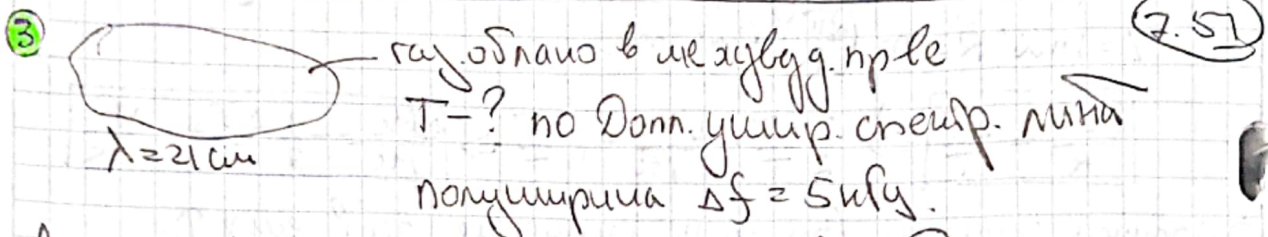 3
7.51
газ. облако в межзвёзд. пр-ве
T-? по Допл. ушир. спектр. линий
λ=21см
полуширина Δf = 5кГц.